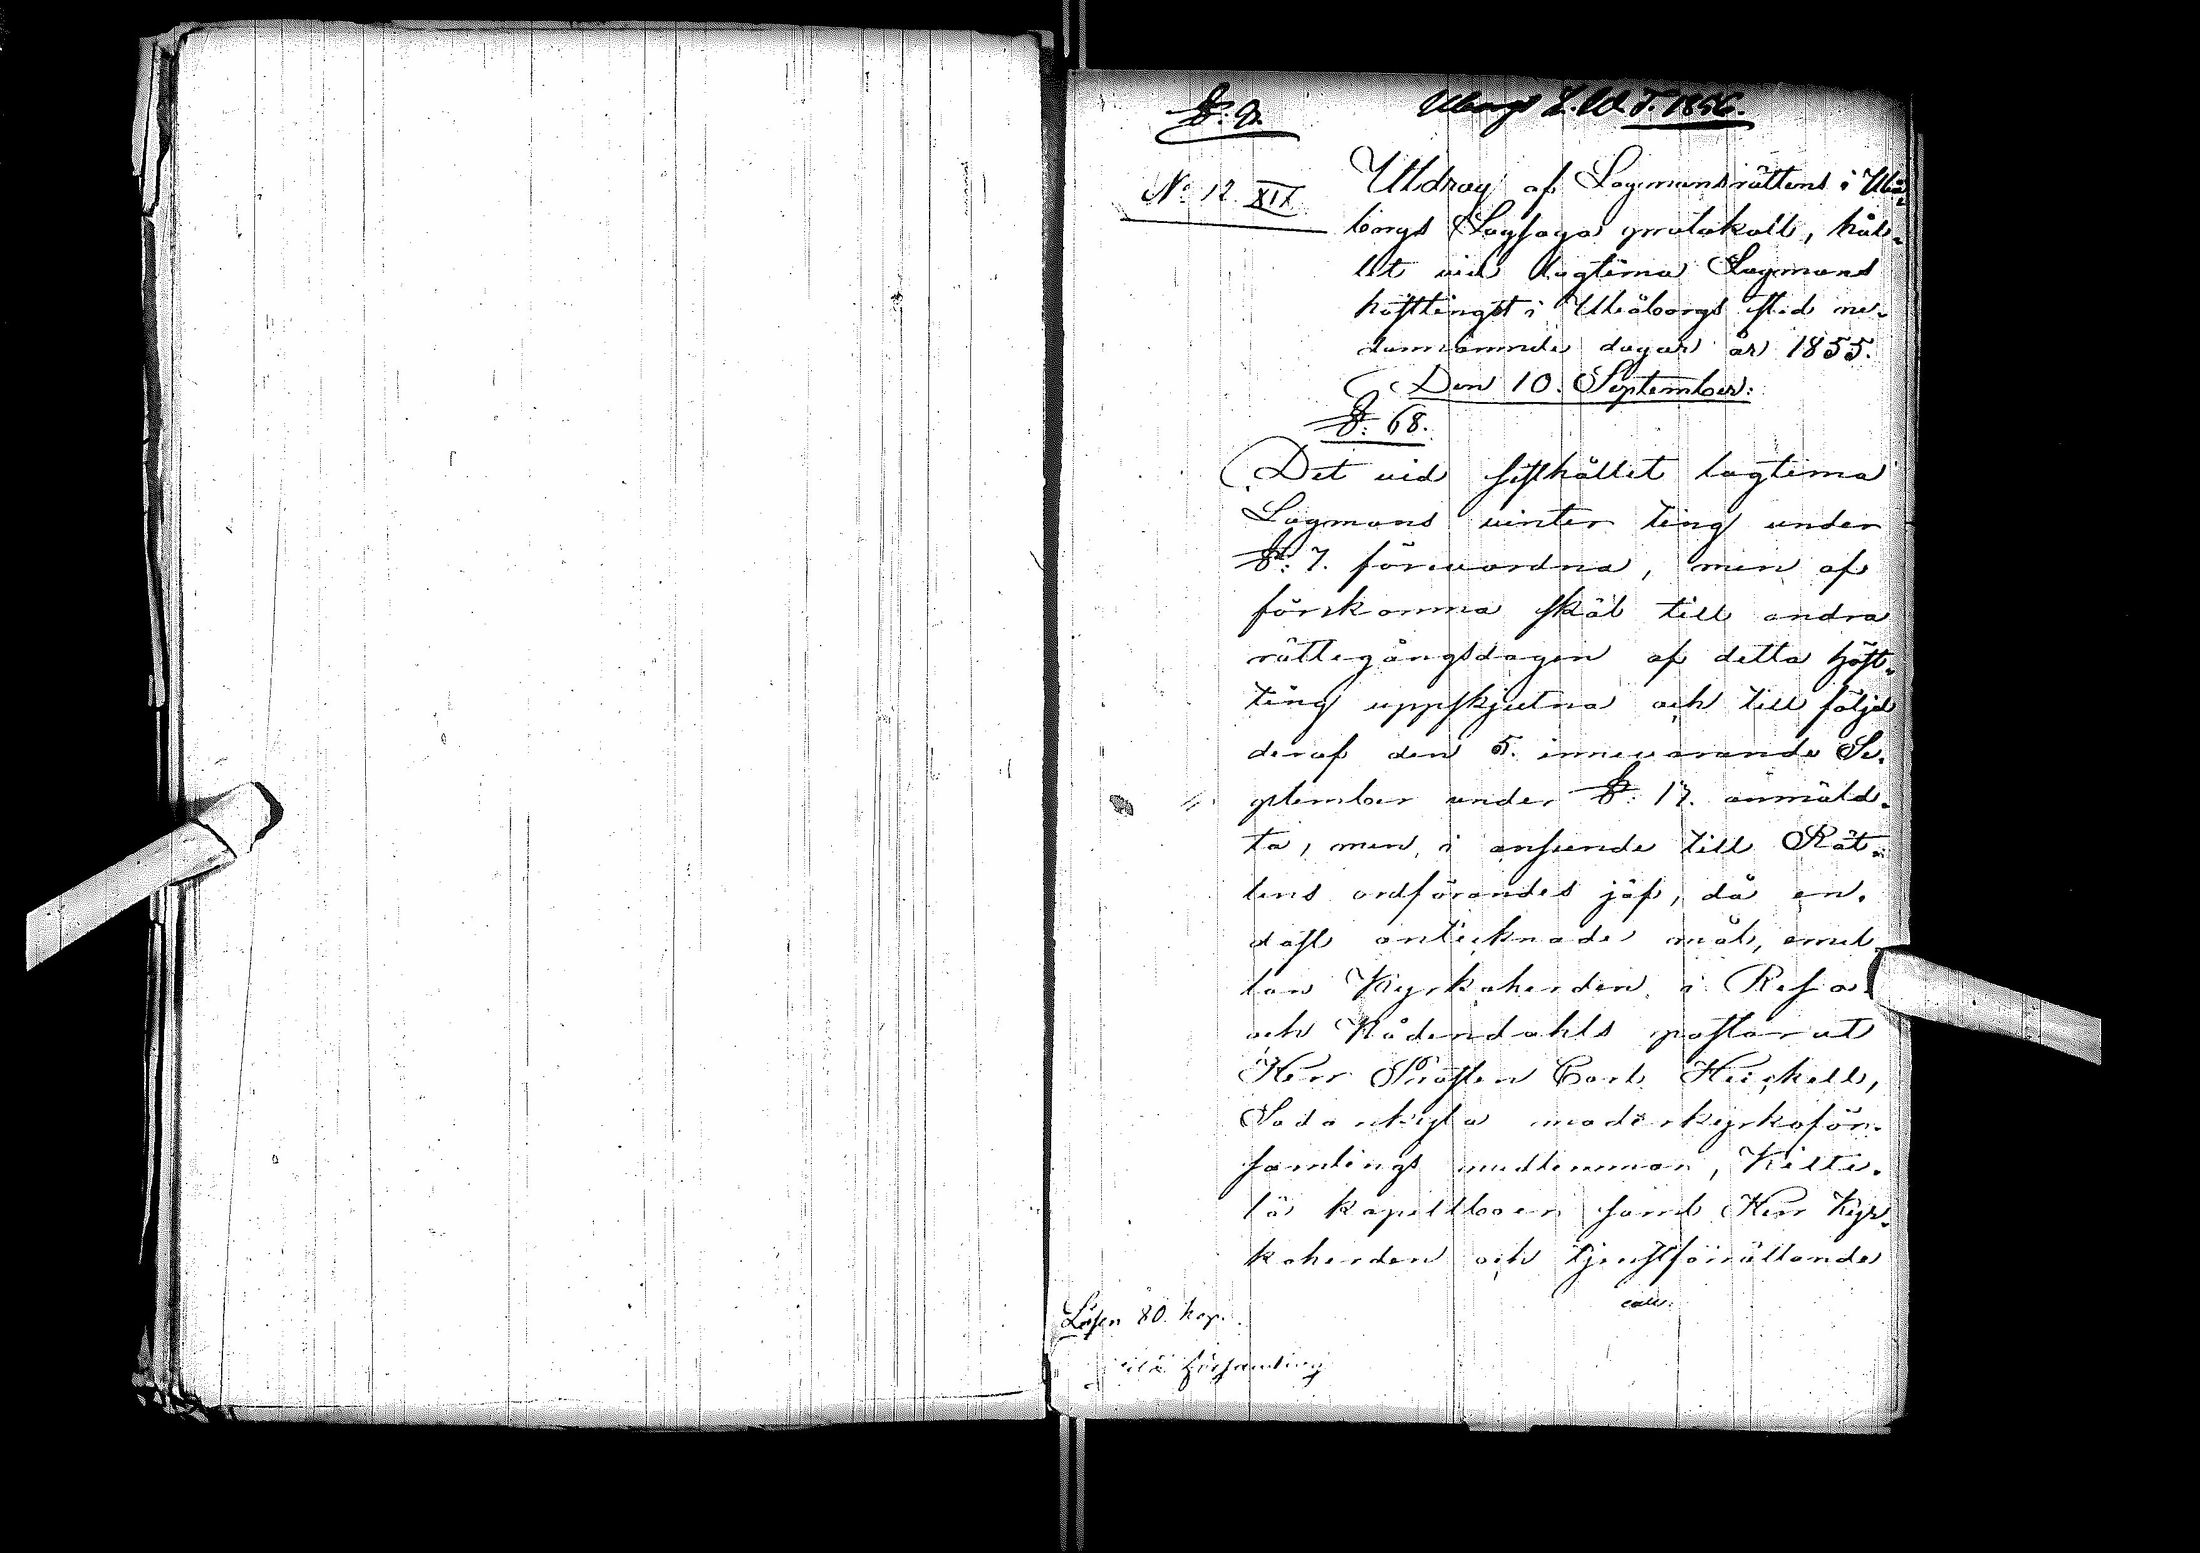 §. 9.
Uleaborgs L. W. T. 1856.
No 12 XIX
Utdrag af Lagmansrättens i Uleå-
borgs Lagsaga protokoll, hål-
let vid lagtima Lagmans
hösttinget i Uleåborgs stad ne-
dannämnde dagar år 1855.
Den 10. September:
§: 68.
Det vid sisthållet lagtima
Lagmans vinter ting under
§: 7. förevordna, men af
förekomna skäl till andra
rättegångsdagen af detta höst-
ting uppskjutna och till följd
deraf den 5. innevarande Se-
ptember under §: 17. anmäld-
ta, men, i anseende till Rät-
tens ordförandes jäf, då en-
dast antecknade mål, emel-
lan Kyrkoherden i Reso
och Nådendahls pastorat
Herr Prosten Carl Heickell,
Sodankylä moderkyrkoför-
samlings medlemmar, Kitti-
lä kapellboer samt Herr Kyr-
koherden och tjenstförrättande
Lösen 80. kop.
församling